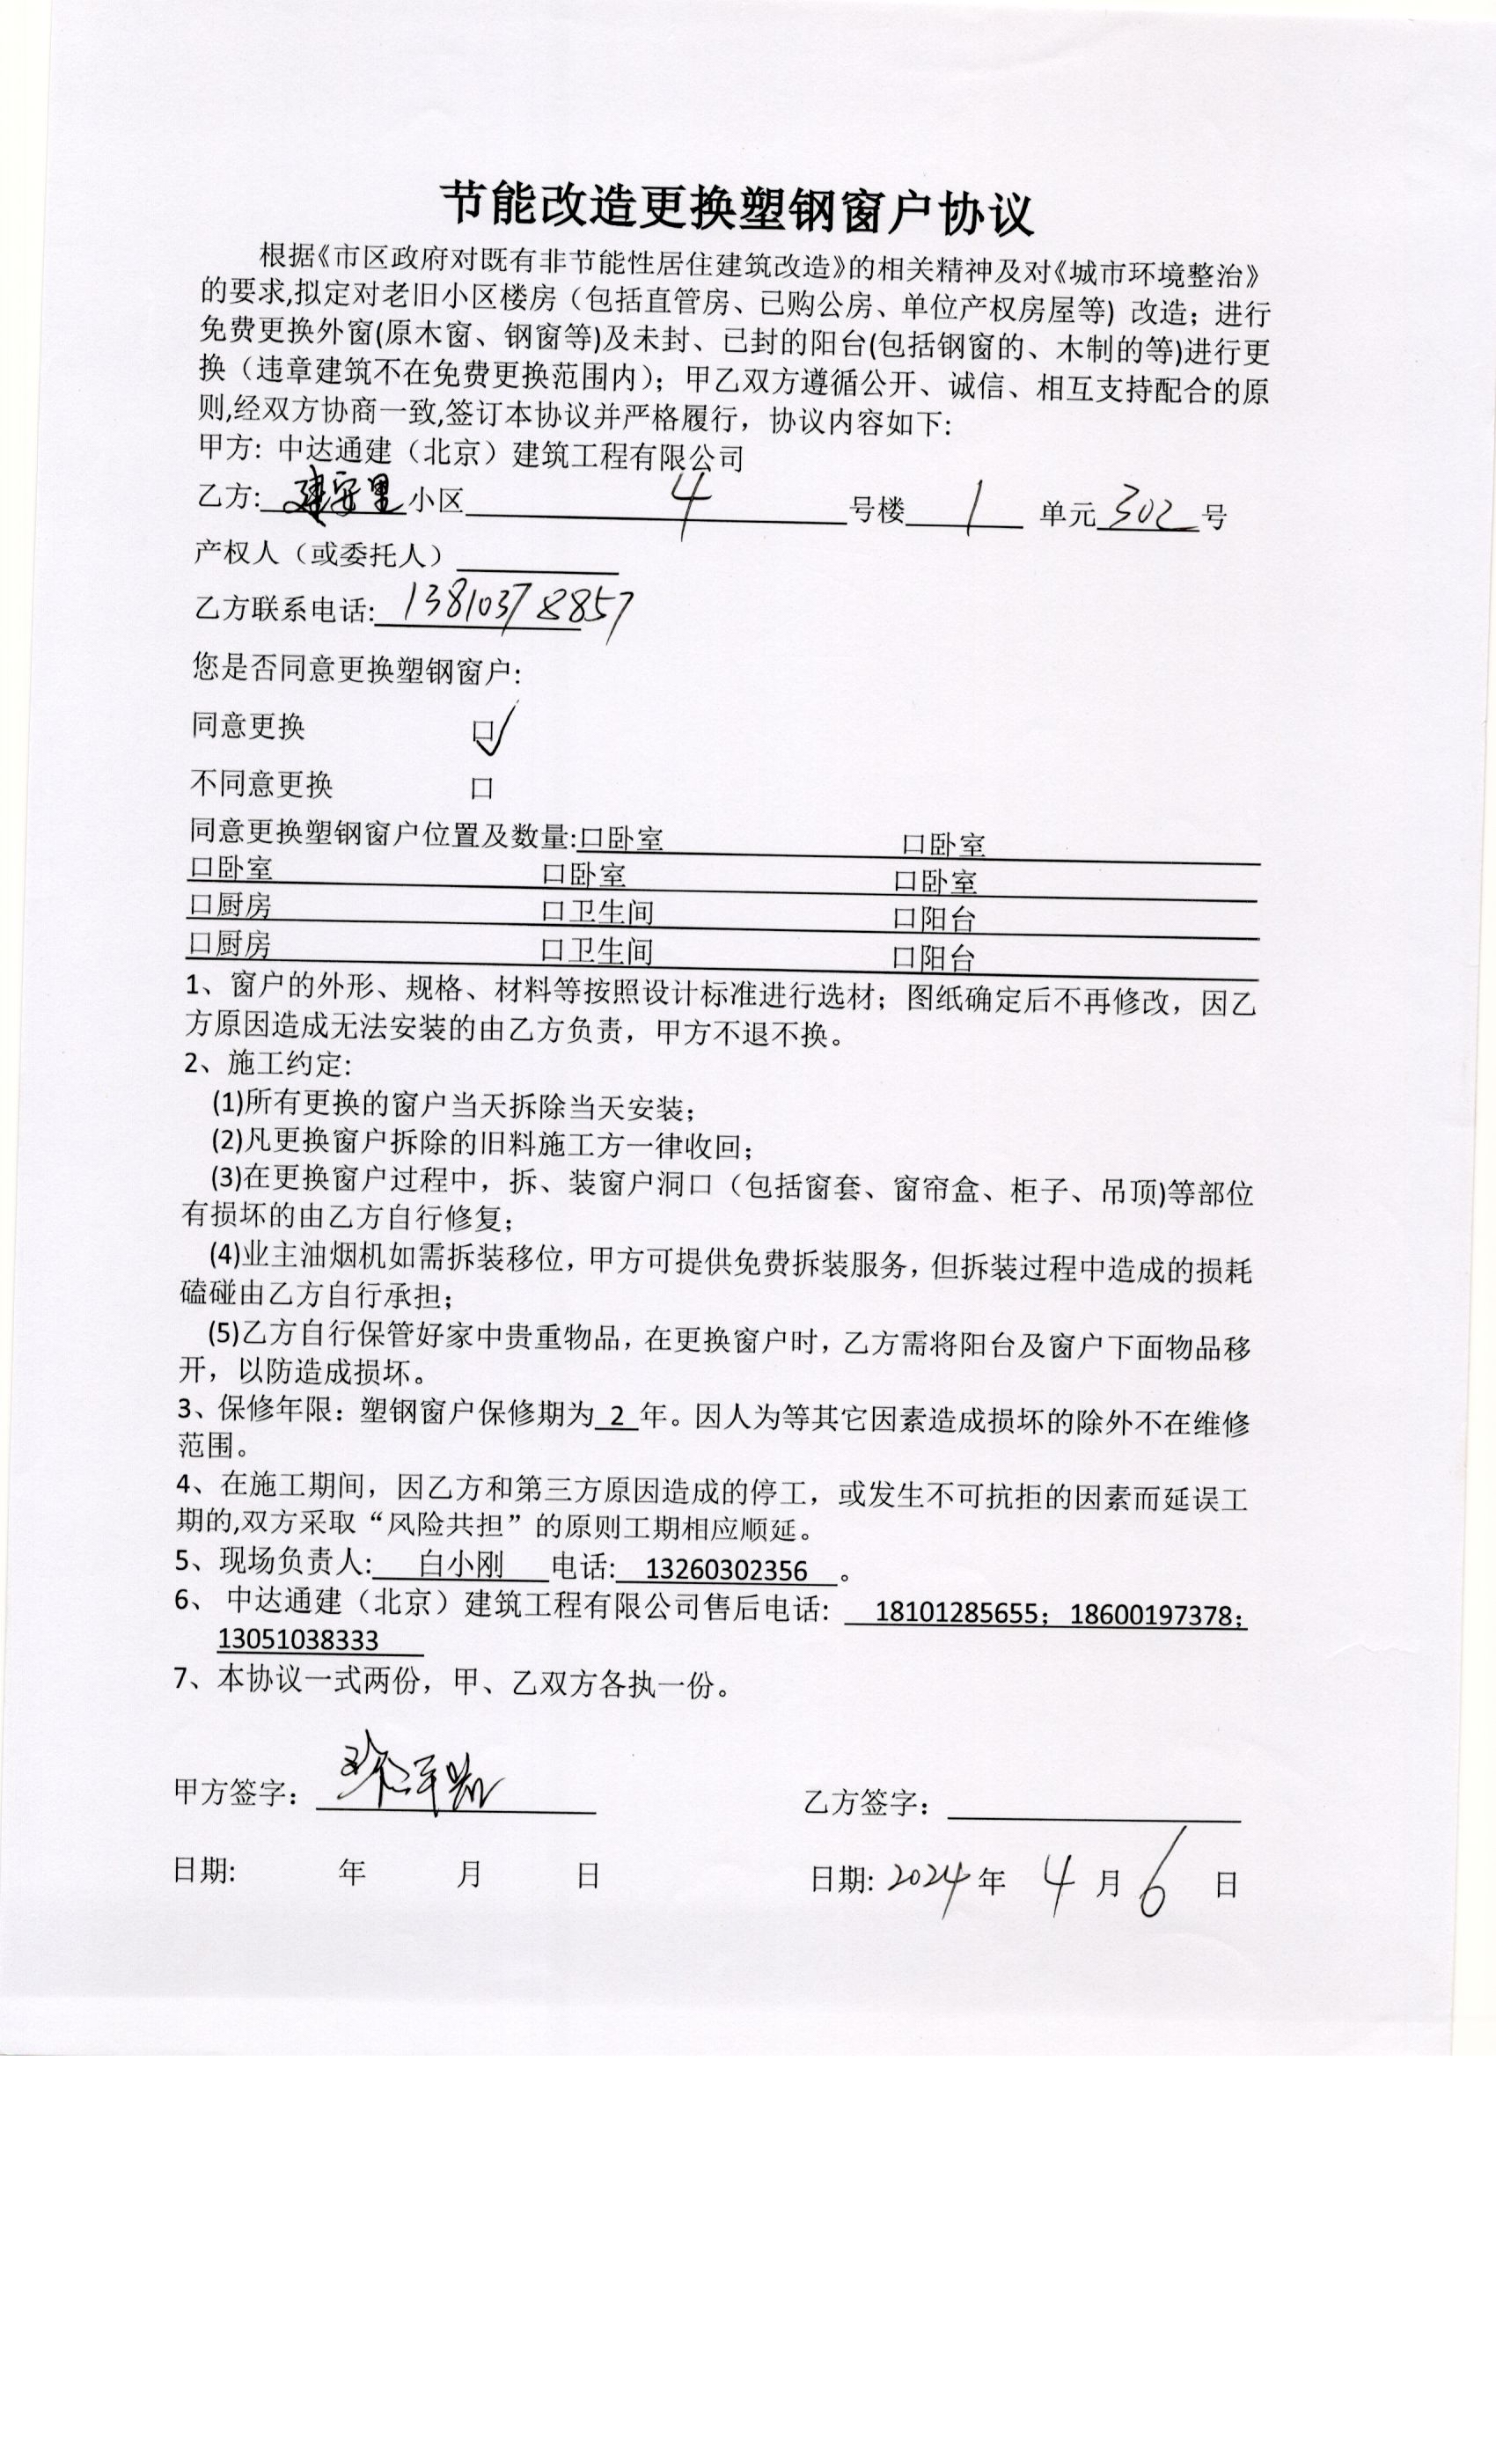 节能改造更换塑钢窗户协议
根据《市区政府对既有非节能性居住建筑改造》的相关精神及对《城市环境整治》
的要求,拟定对老旧小区楼房（包括直管房、已购公房、单位产权房屋等) 改造；进行
免费更换外窗(原木窗、钢窗等)及未封、已封的阳台(包括钢窗的、木制的等)进行更
换（违章建筑不在免费更换范围内)；甲乙双方遵循公开、诚信、相互支持配合的原
则,经双方协商一致,签订本协议并严格履行，协议内容如下:
甲方: 中达通建（北京）建筑工程有限公司
乙方: 建安里 小区 4 号楼 1 单元 302 号
产权人（或委托人）
乙方联系电话: 13810378857
您是否同意更换塑钢窗户:
同意更换 口✓
不同意更换 口
同意更换塑钢窗户位置及数量:口卧室 口卧室
口卧室 口卧室 口卧室
口厨房 口卫生间 口阳台
口厨房 口卫生间 口阳台
1、窗户的外形、规格、材料等按照设计标准进行选材；图纸确定后不再修改，因乙
方原因造成无法安装的由乙方负责，甲方不退不换。
2、施工约定:
(1)所有更换的窗户当天拆除当天安装；
(2)凡更换窗户拆除的旧料施工方一律收回；
(3)在更换窗户过程中，拆、装窗户洞口（包括窗套、窗帘盒、柜子、吊顶)等部位
有损坏的由乙方自行修复；
(4)业主油烟机如需拆装移位，甲方可提供免费拆装服务，但拆装过程中造成的损耗
磕碰由乙方自行承担；
(5)乙方自行保管好家中贵重物品，在更换窗户时，乙方需将阳台及窗户下面物品移
开，以防造成损坏。
3、保修年限：塑钢窗户保修期为 2 年。因人为等其它因素造成损坏的除外不在维修
范围。
4、在施工期间，因乙方和第三方原因造成的停工，或发生不可抗拒的因素而延误工
期的,双方采取“风险共担”的原则工期相应顺延。
5、现场负责人: 白小刚 电话: 13260302356 。
6、 中达通建（北京）建筑工程有限公司售后电话: 18101285655；18600197378；
13051038333
7、本协议一式两份，甲、乙双方各执一份。
甲方签字： 乙方签字：
日期: 年 月 日 日期: 2024 年 4 月 6 日